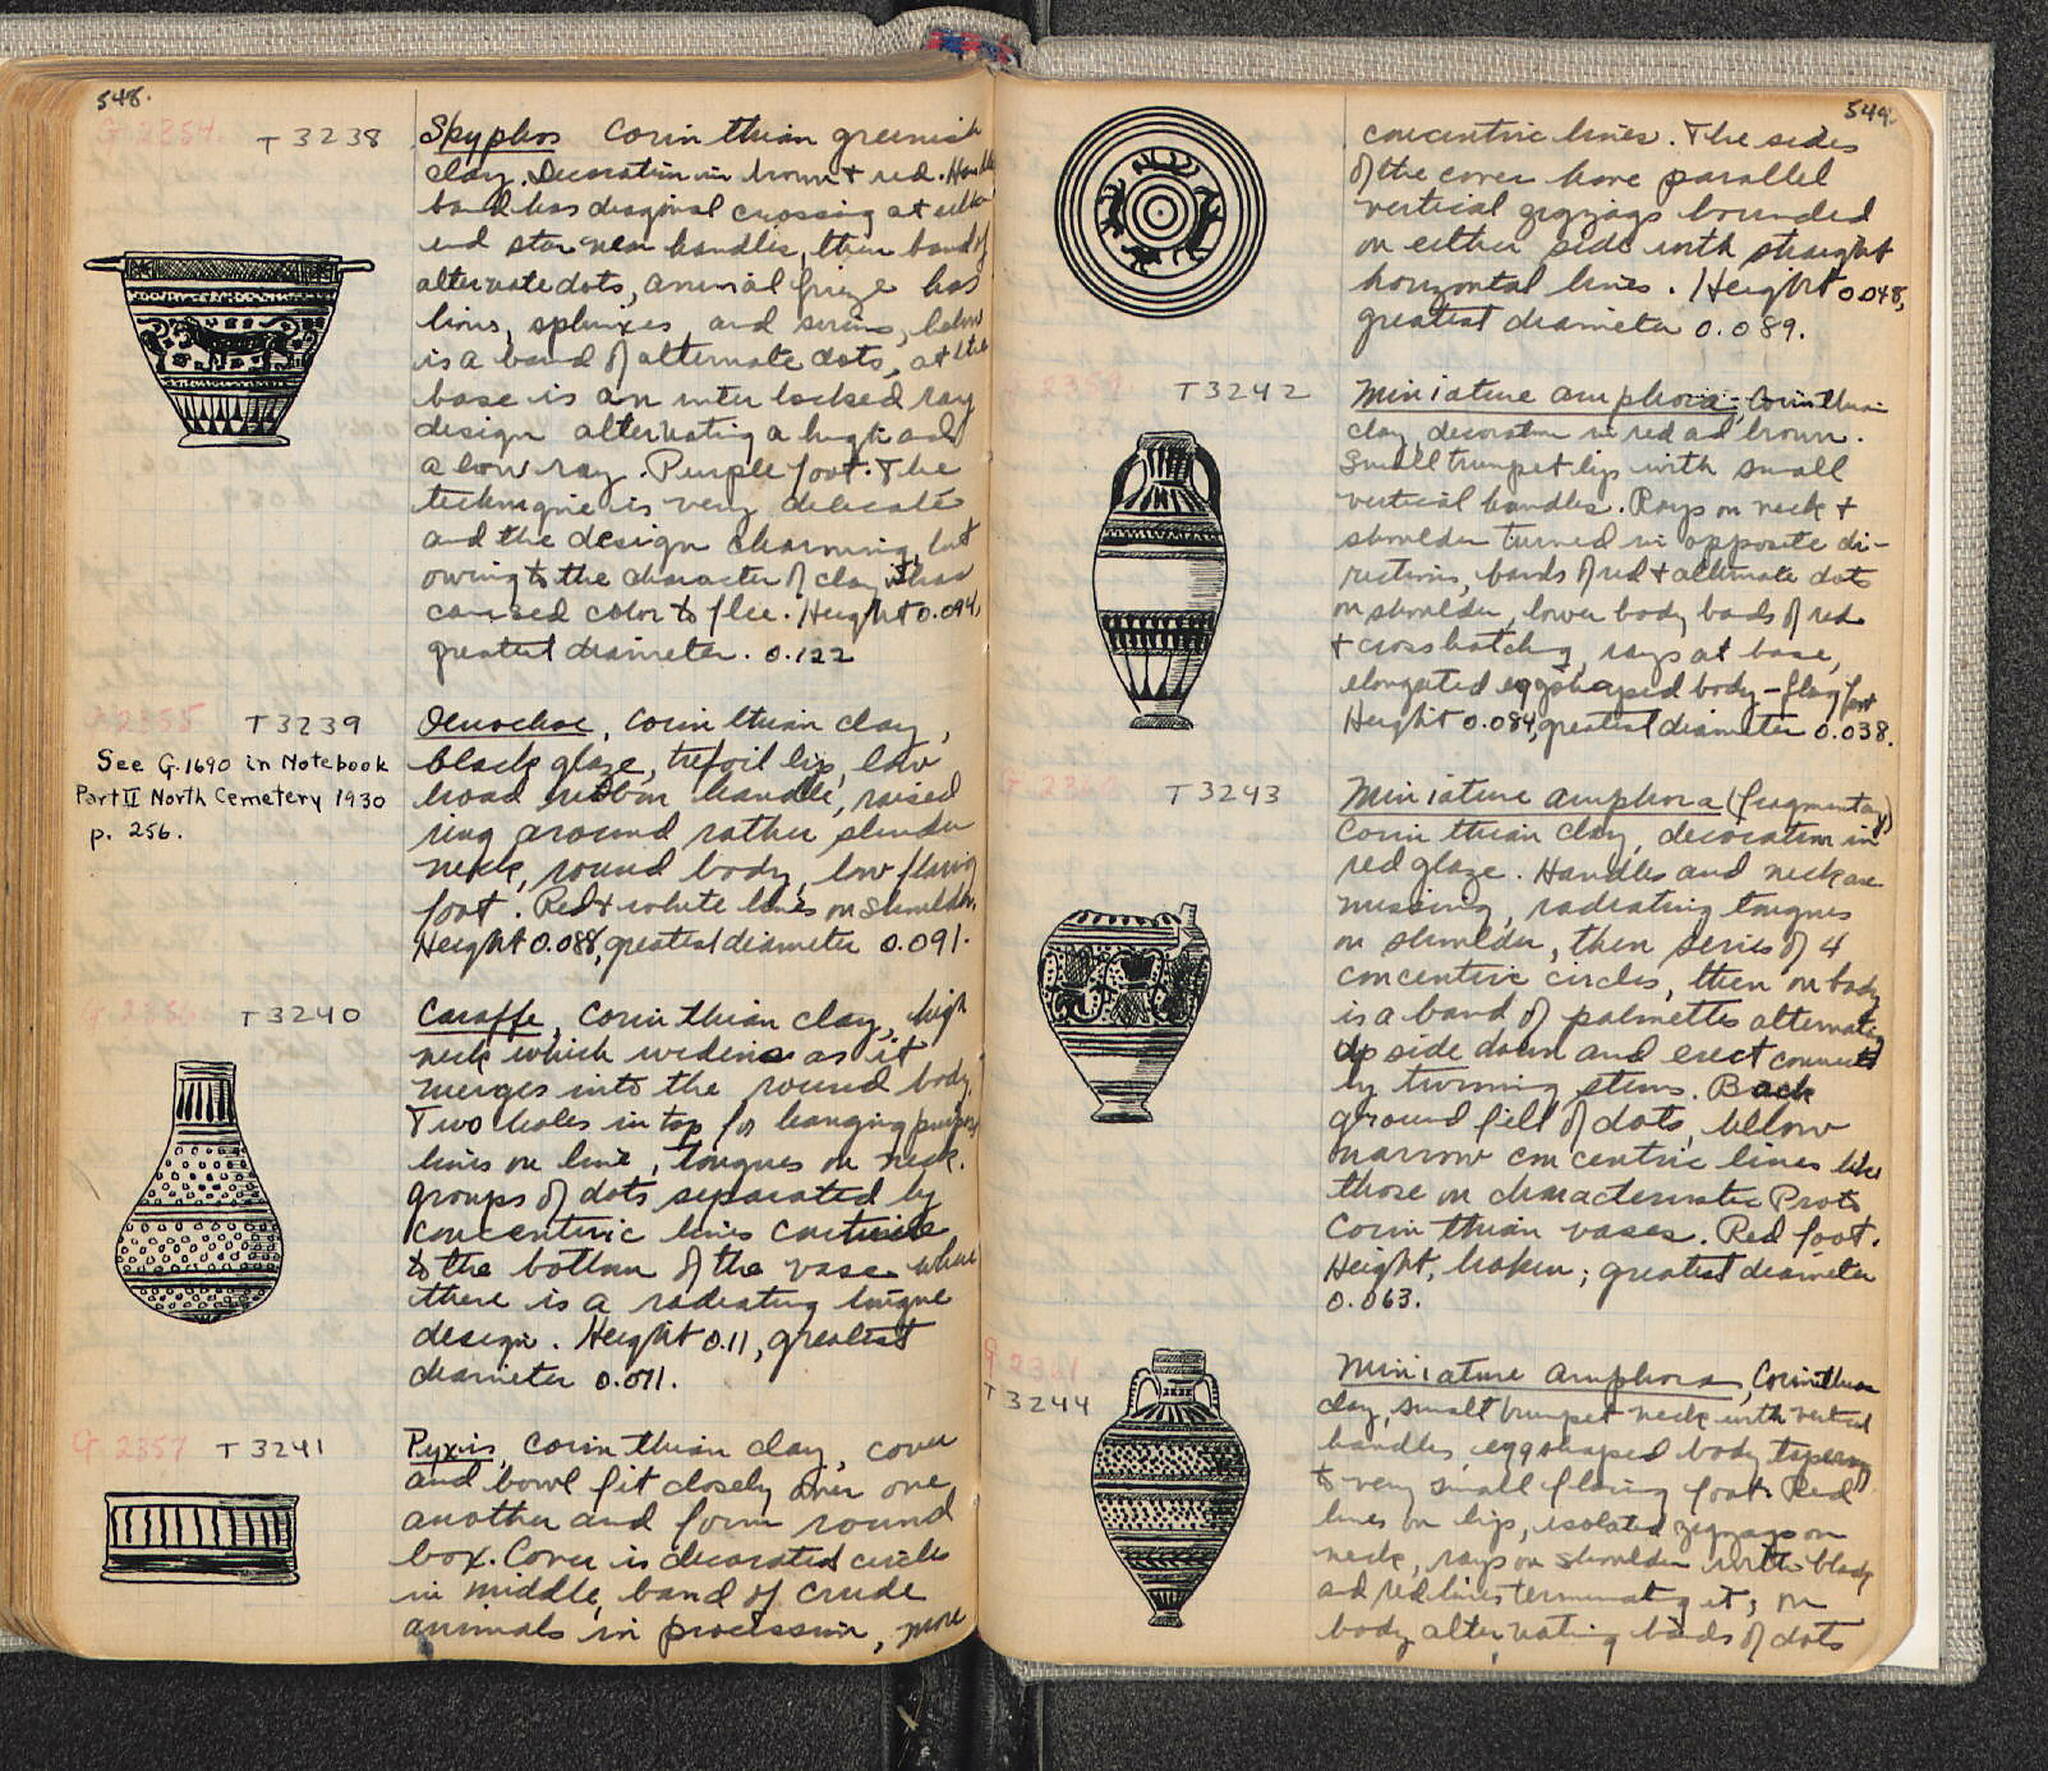 548.
G 2354.
T 3238
Skyphos Corinthian greenish
clay. Decoration in brown + red. Handle
band has diagonal crossing at either
end star near handles, then band of
alternate dots, animal frieze has
lions, sphinxes, and sirens, below
is a band of alternate dots, at the
base is an inter locked ray
design alternating a high and
a low ray. Purple foot. The
technique is very delicate
and the design charming, but
owing to the character of clay has
caused color to flee. Height 0.094,
greatest diameter. 0.122
G 2355
T 3239
See G.1690 in Notebook
Part II North Cemetery 1930
p. 256.
Oenochoe, Corinthian clay,
black glaze, trefoil lip, low
broad ribbon handle, raised
ring around rather slender
neck, round body, low flaring
foot. Red + white lines on shoulder.
Height 0.088, greatest diameter 0.091.
G 2356
T 3240
Caraffe, Corinthian clay, high
neck which widens as it
merges into the round body.
Two holes in top for hanging purposes
lines on line, tongues on neck.
groups of dots separated by
concentric lines continue
to the bottom of the vase where
there is a radiating tongue
design. Height 0.11, greatest
diameter 0.071.
G 2357
T 3241
Pyxis, Corinthian clay, cover
and bowl fit closely over one
another and form round
box. Cover is decorated circles
in middle, band of crude
animals in procession, more
549.
concentric lines. The sides
of the cover have parallel
vertical zigzags bounded
on either side with straight
horizontal lines. Height 0.048,
greatest diameter 0.089.
G 2359.
T 3242
Miniature amphora, Corinthian
clay, decoration in red and brown.
Small trumpet lip with small
vertical handles. Rays on neck +
shoulder turned in opposite di-
rections, bands of red + alternate dots
on shoulder, lower body bands of red
+ cross hatching, rays at base,
elongated eggshaped body - flaring foot
Height 0.084, greatest diameter 0.038.
G 2360
T 3243
Miniature amphora (fragmentary)
Corinthian clay, decoration in
red glaze. Handles and neck are
missing, radiating tongues
on shoulder, then series of 4
concentric circles, then on body
is a band of palmettes alternately
up side down and erect connected
by twining stems. Back
ground fill of dots, below
narrow concentric lines like
those on characteristic Proto
Corinthian vases. Red foot.
Height, broken; greatest diameter
0.063.
G 2361
T 3244
Miniature amphora, Corinthian
clay, small trumpet neck with vertical
handles, eggshaped body tapering
to very small flaring foot. Red
lines on lip, isolated zigzags on
neck, rays on shoulder with black
and red lines terminating it; on
body alternating bands of dots